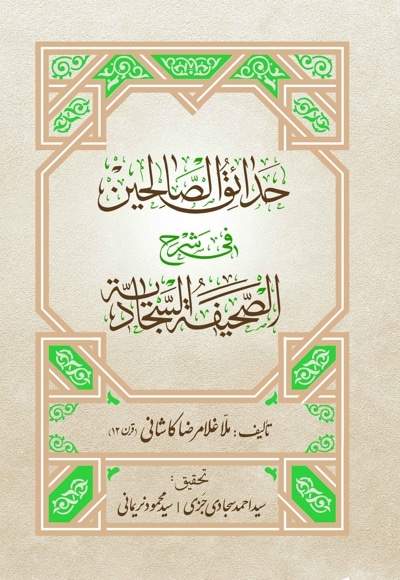 حدائق الصالحين
في شرح
الصحيفة السجادية
تألیف: ملا غلامرضا کاشانی (قرن ۱۲)
تحقیق:
سید احمد سجادی جَزی | سید محمود نریمانی